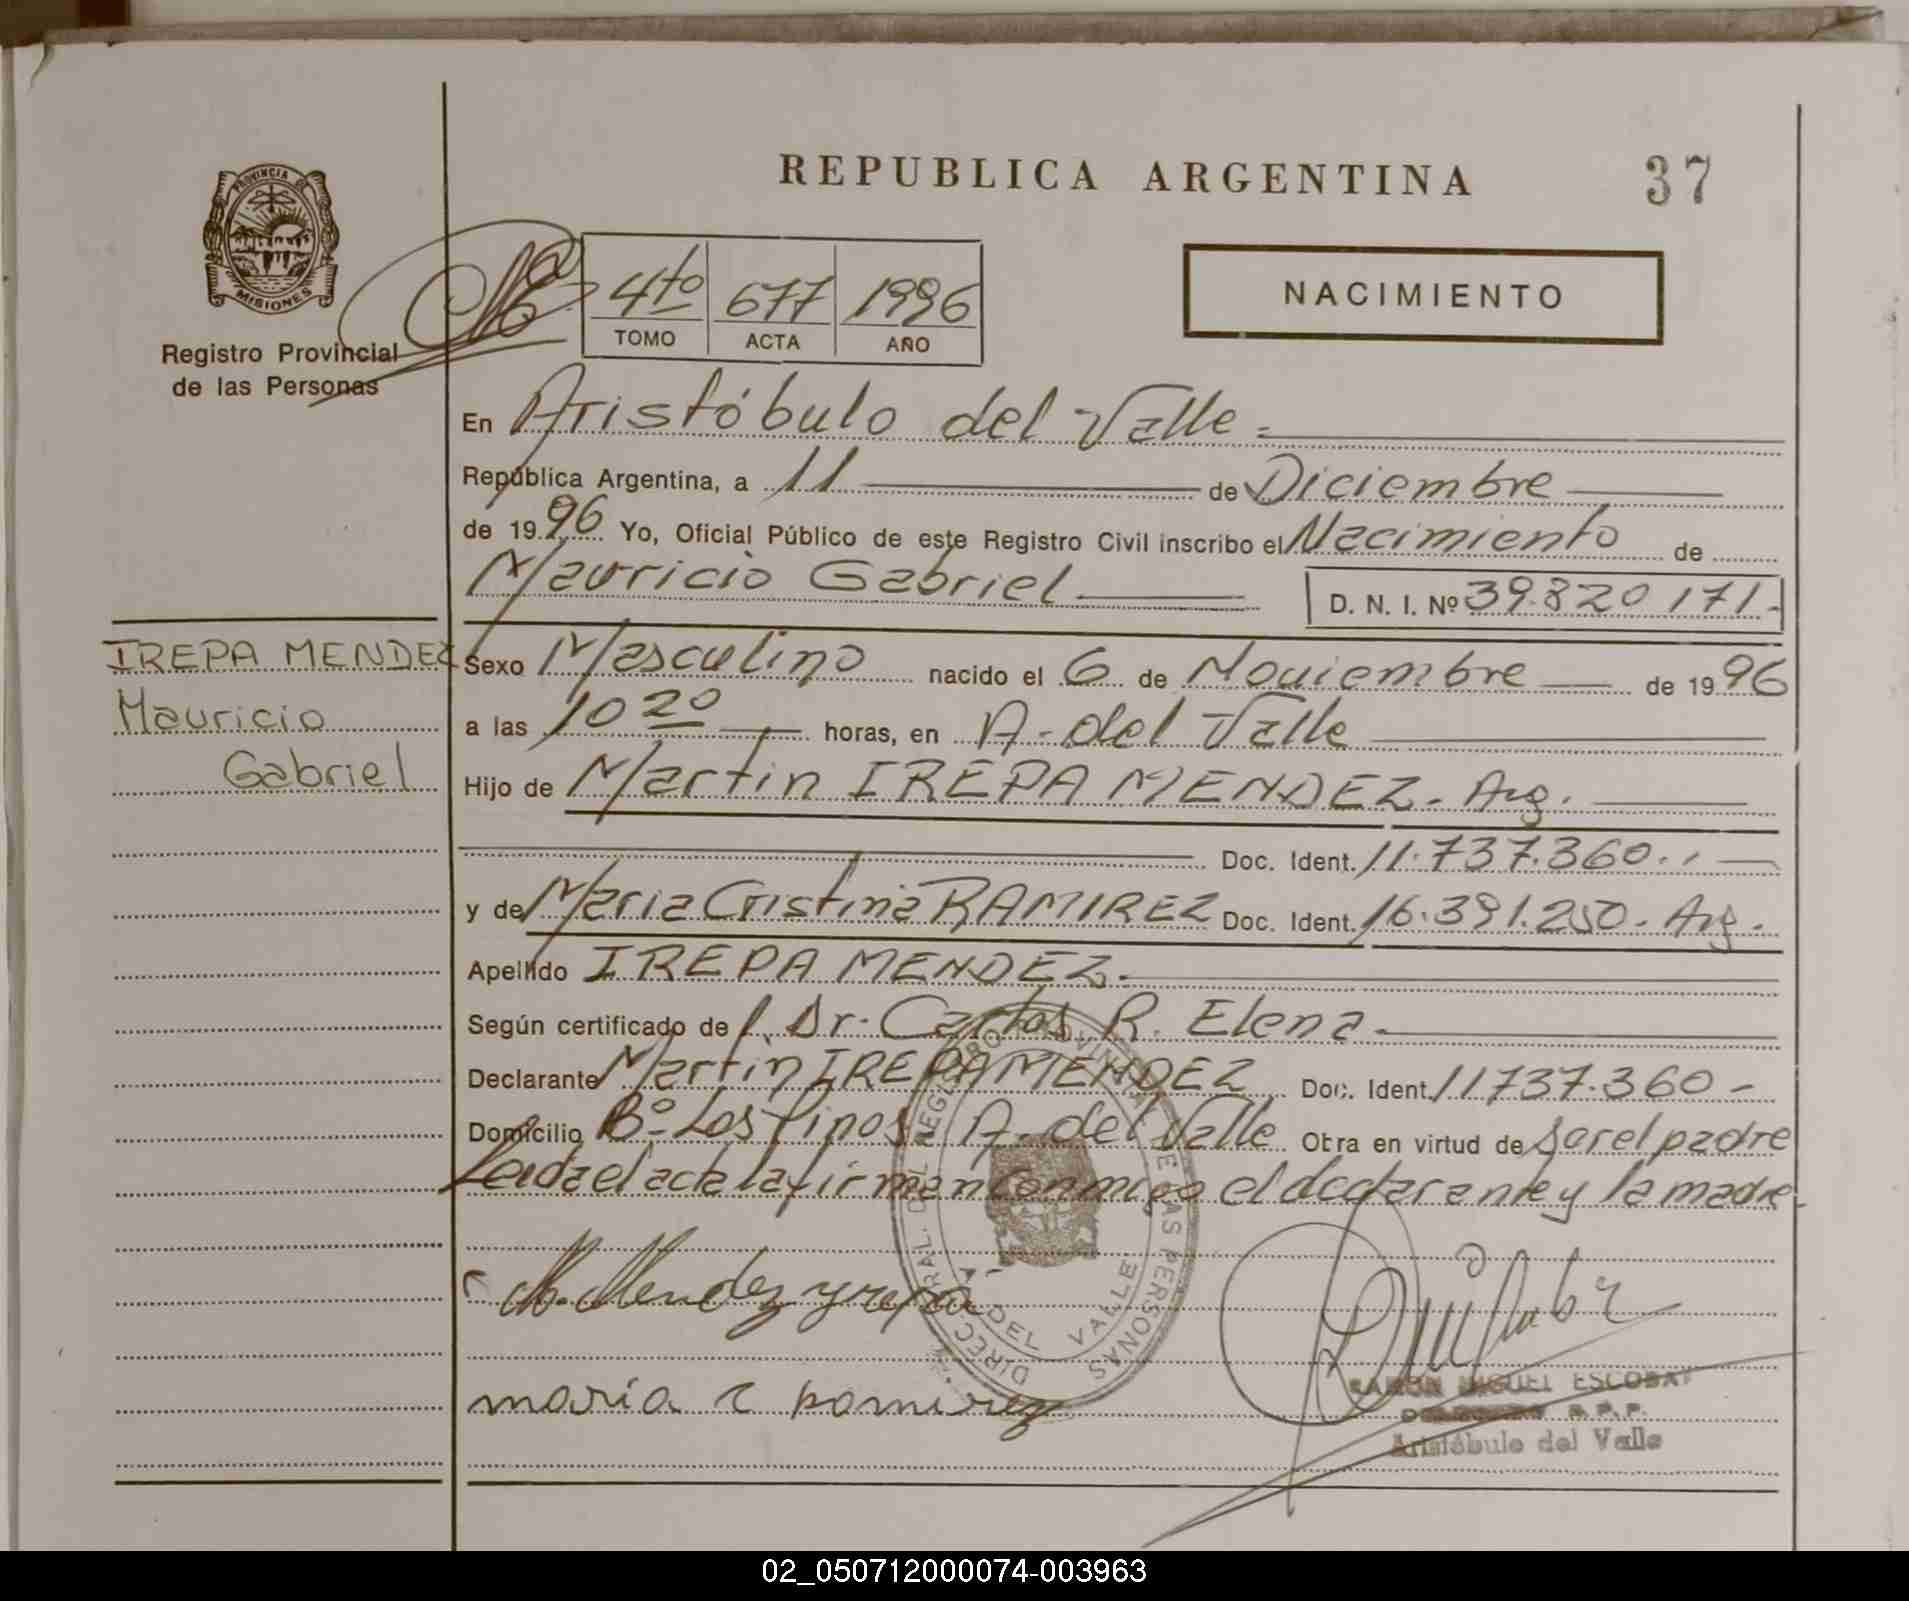 REPUBLICA ARGENTINA
37
PROVINCIA DE
MISIONES
Registro Provincial
de las Personas
4to 677 1996
TOMO ACTA AÑO
NACIMIENTO
En Aristóbulo del Valle.
República Argentina, a 11 de Diciembre
de 1996 Yo, Oficial Público de este Registro Civil inscribo el Nacimiento de
Mauricio Gabriel D. N. I. Nº 39.820 171.
IREPA MENDEZ
Mauricio
Gabriel
Sexo Masculino nacido el 6 de Noviembre de 1996
a las 10 20 horas, en A. del Valle
Hijo de Martin IREPA MENDEZ. Arg.
Doc. Ident. 11.737.360..
y de Maria Cristina RAMIREZ Doc. Ident. 16.391.250. Arg.
Apellido IREPA MENDEZ.
Según certificado de Dr. Carlos R. Elena.
Declarante Martin IREPA MENDEZ Doc. Ident. 11737.360-
Domicilio Bº Los Pinos A. del Valle Obra en virtud de ser el padre
Leida el acta la firman conmigo el declarante y la madre.
M. Mendez yrepa
maria c ramirez
DIRECC. GRAL. DEL REGISTRO PROVINCIAL DE LAS PERSONAS
DEL VALLE
RAMON MIGUEL ESCOBAR
R.P.P.
Aristóbulo del Valle
02_050712000074-003963